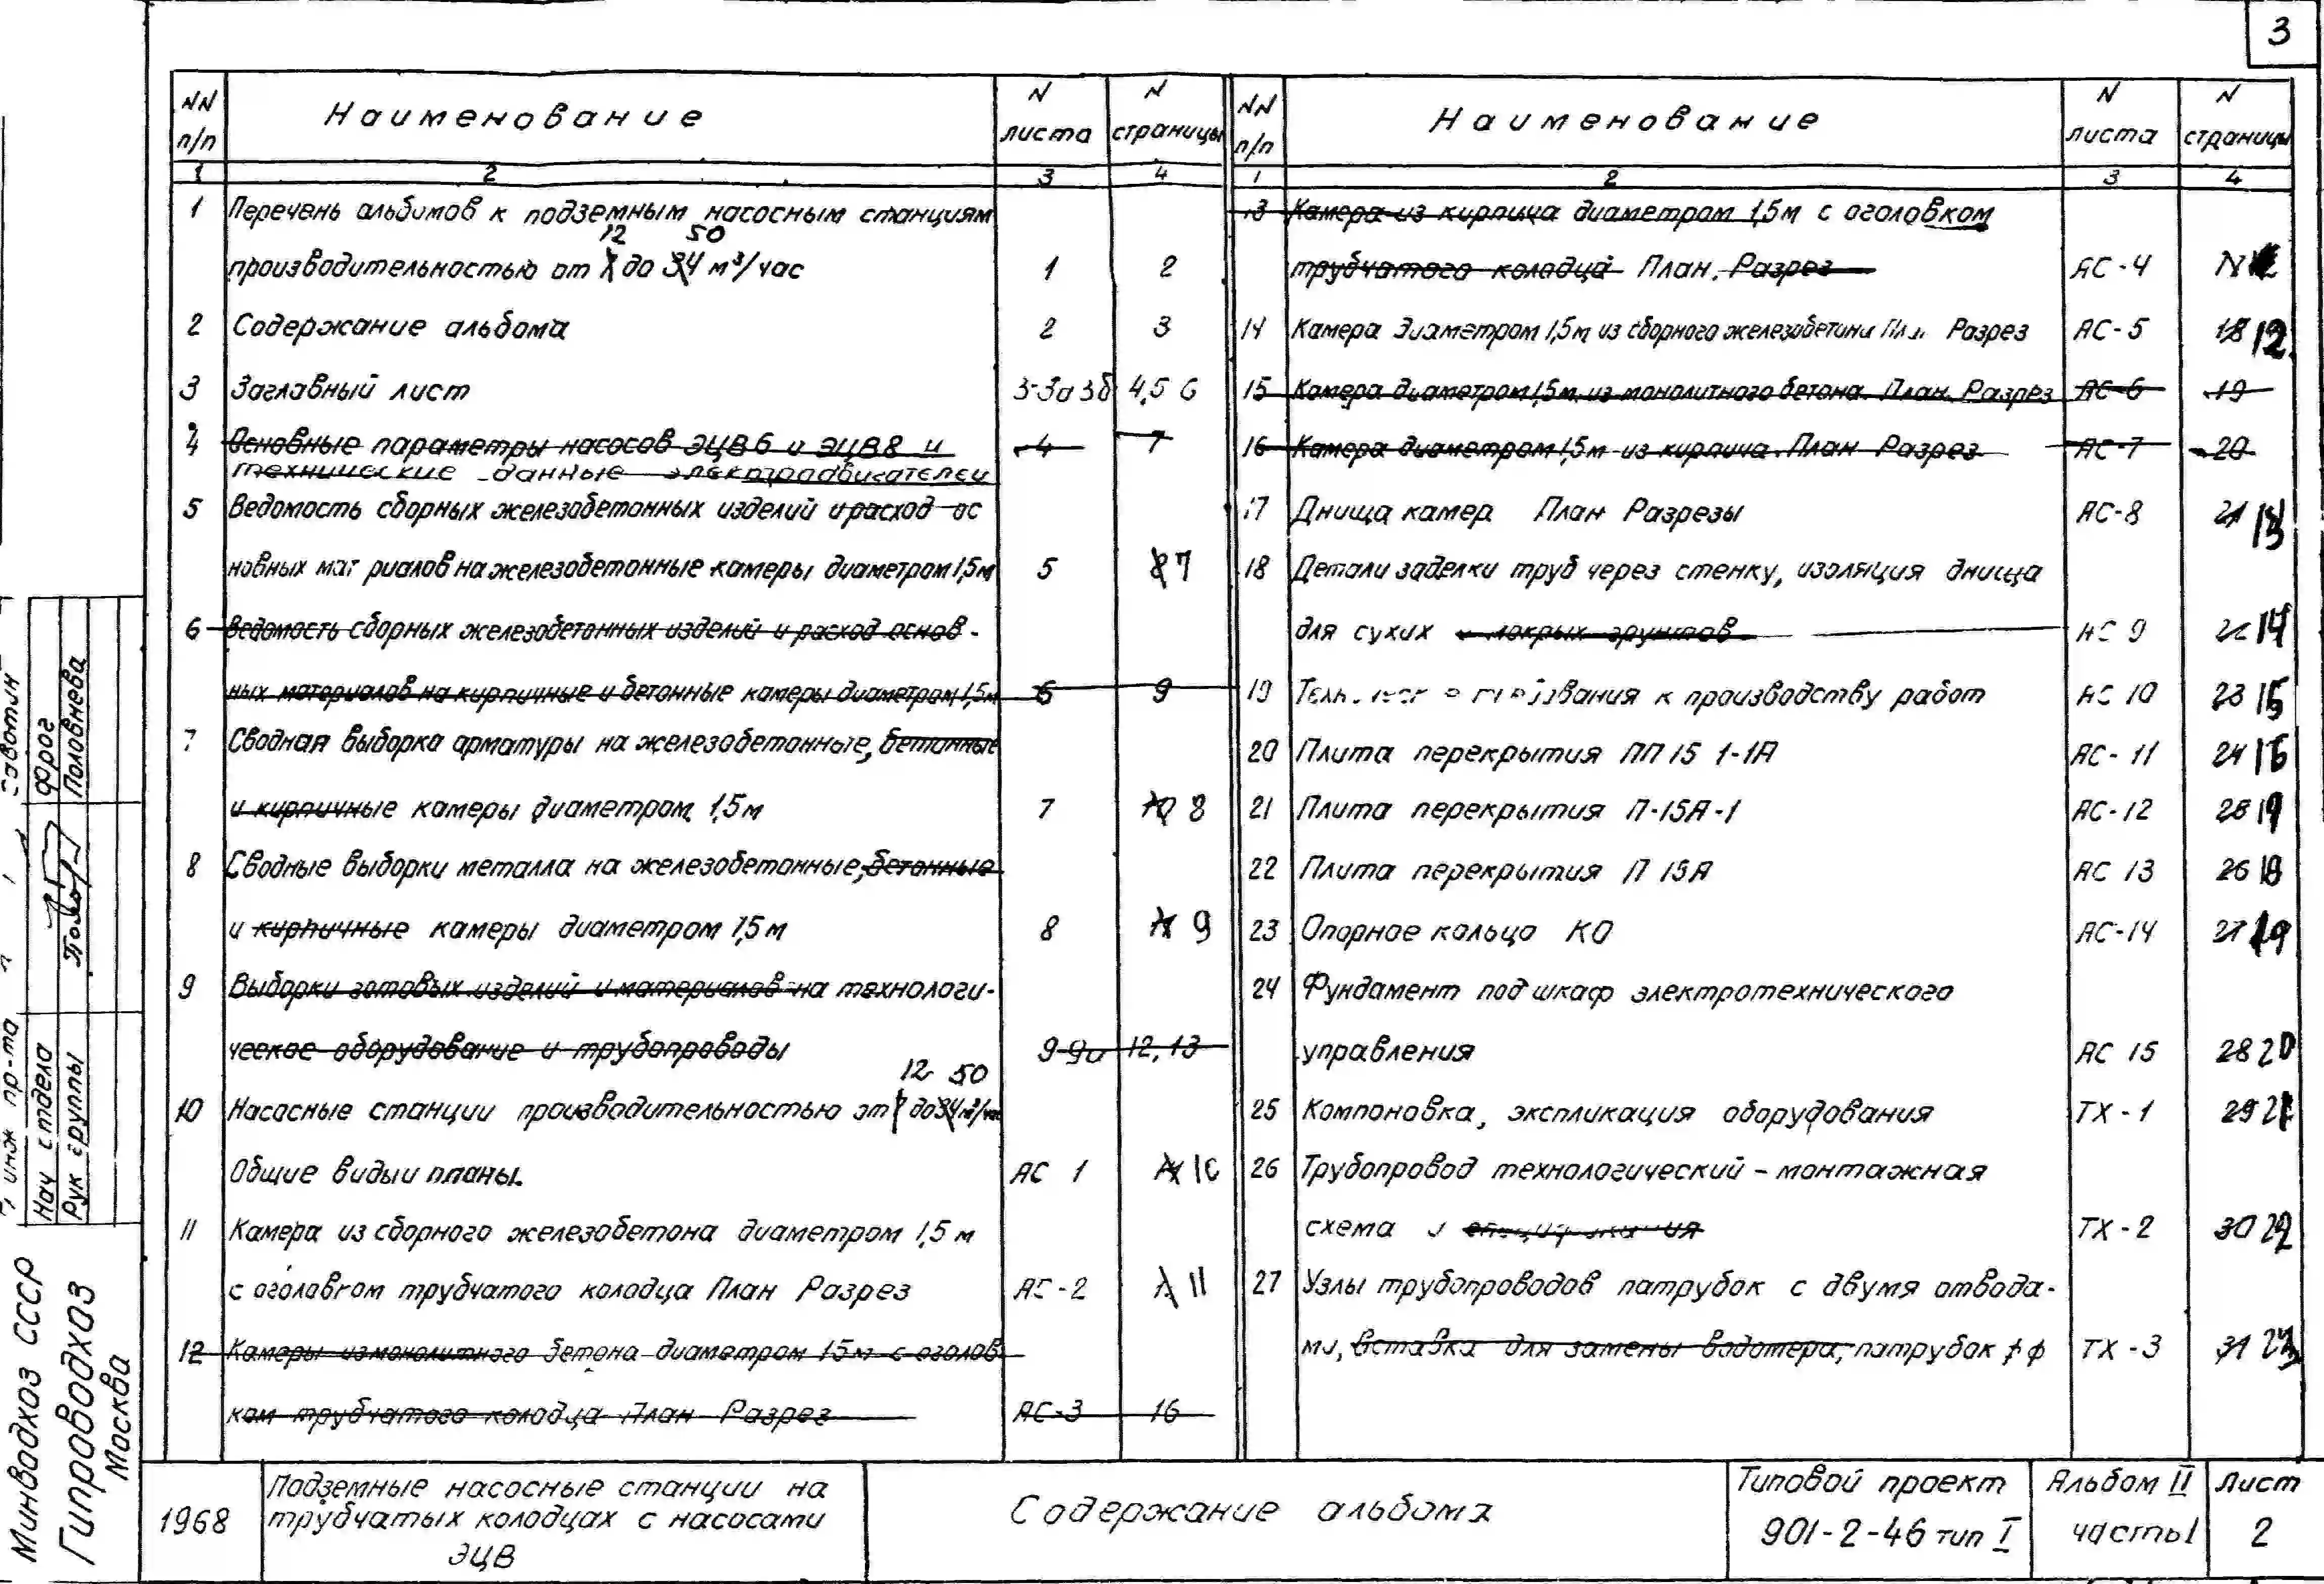 3
NN п/п Наименование N листа N страницы
1 2 3 4
1 Перечень альбомов к подземным насосным станциям
12 50
производительностью от 7 до 34 м³/час 1 2
2 Содержание альбома 2 3
3 Заглавный лист 3-3а 3б 4,5 6
4 Основные параметры насосов ЭЦВ6 и ЭЦВ8 и 4 7
технические данные электродвигателей
5 Ведомость сборных железобетонных изделий и расход ос
новных мат риалов на железобетонные камеры диаметром 1,5м 5 8 7
6 Ведомость сборных железобетонных изделий и расход основ-
ных материалов на кирпичные и бетонные камеры диаметром 1,5м 6 9
7 Сводная выборка арматуры на железобетонные, бетонные
и кирпичные камеры диаметром 1,5м 7 10 8
8 Сводные выборки металла на железобетонные, бетонные
и кирпичные камеры диаметром 1,5м 8 11 9
9 Выборки готовых изделий и материалов на технологи-
ческое оборудование и трубопроводы 9-9а 12,13
12 50
10 Насосные станции производительностью от 7 до 34 м³/час
Общие виды и планы. АС 1 10
11 Камера из сборного железобетона диаметром 1,5 м
с оголовком трубчатого колодца План Разрез АС-2 11
12 Камеры из монолитного бетона диаметром 1,5м с оголов
ком трубчатого колодца План Разрез АС-3 16
NN п/п Наименование N листа N страницы
1 2 3 4
13 Камера из кирпича диаметром 1,5м с оголовком
трубчатого колодца План. Разрез АС-4
14 Камера Диаметром 1,5м из сборного железобетона План Разрез АС-5 18 12
15 Камера диаметром 1,5м из монолитного бетона План. Разрез АС-6 19
16 Камера диаметром 1,5м из кирпича План Разрез АС-7 20
17 Днища камер План Разрезы АС-8 21 13
18 Детали заделки труб через стенку, изоляция днища
для сухих и мокрых грунтов АС 9 22 14
19 требования к производству работ АС 10 23 15
20 Плита перекрытия ПП 15 1-1А АС-11 24 16
21 Плита перекрытия П-15А-1 АС-12 25 17
22 Плита перекрытия П 15А АС 13 26 18
23 Опорное кольцо КО АС-14 27 19
24 Фундамент под шкаф электротехнического
управления АС 15 28 20
25 Компоновка, экспликация оборудования ТХ-1 29 21
26 Трубопровод технологический - монтажная
схема и ТХ-2 30 22
27 Узлы трубопроводов патрубок с двумя отвода-
ми, вставка для замены водомера, патрубок ф ф ТХ-3 31 23
Нач отдела Фрог
Рук группы Половнева
Минводхоз СССР
Гипроводхоз
Москва
1968
Подземные насосные станции на
трубчатых колодцах с насосами
ЭЦВ
Содержание альбома
Типовой проект
901-2-46 тип I
Альбом II
часть 1
Лист
2